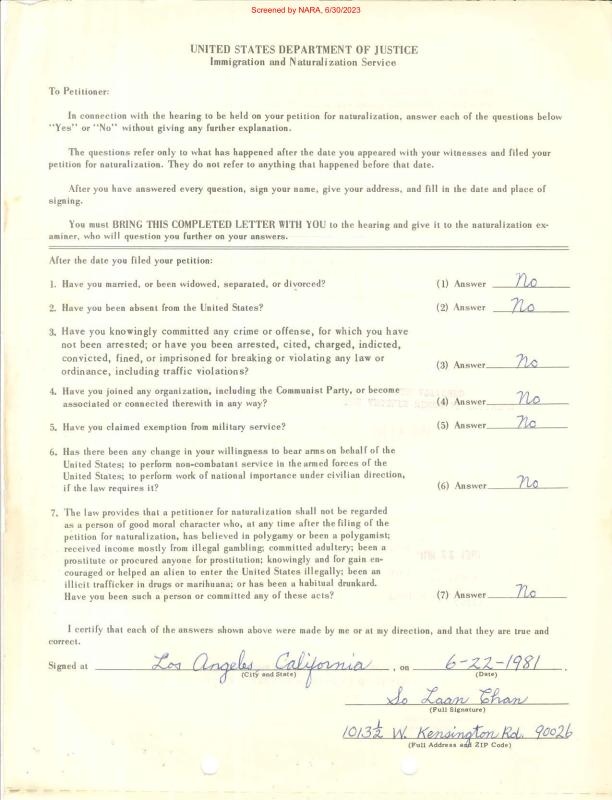 Screened by NARA, 6/30/2023
UNITED STATES DEPARTMENT OF JUSTICE
Immigration and Naturalization Service
To Petitioner:
In connection with the hearing to be held on your petition for naturalization, answer each of the questions below
"Yes" or "No" without giving any further explanation.
The questions refer only to what has happened after the date you appeared with your witnesses and filed your
petition for naturalization. They do not refer to anything that happened before that date.
After you have answered every question, sign your name, give your address, and fill in the date and place of
signing.
You must BRING THIS COMPLETED LETTER WITH YOU to the hearing and give it to the naturalization ex-
aminer, who will question you further on your answers.
After the date you filed your petition:
1. Have you married, or been widowed, separated, or divorced? (1) Answer No
2. Have you been absent from the United States? (2) Answer No
3. Have you knowingly committed any crime or offense, for which you have
not been arrested; or have you been arrested, cited, charged, indicted,
convicted, fined, or imprisoned for breaking or violating any law or
ordinance, including traffic violations? (3) Answer No
4. Have you joined any organization, including the Communist Party, or become
associated or connected therewith in any way? (4) Answer No
5. Have you claimed exemption from military service? (5) Answer No
6. Has there been any change in your willingness to bear arms on behalf of the
United States; to perform non-combatant service in the armed forces of the
United States; to perform work of national importance under civilian direction,
if the law requires it? (6) Answer No
7. The law provides that a petitioner for naturalization shall not be regarded
as a person of good moral character who, at any time after the filing of the
petition for naturalization, has believed in polygamy or been a polygamist;
received income mostly from illegal gambling; committed adultery; been a
prostitute or procured anyone for prostitution; knowingly and for gain en-
couraged or helped an alien to enter the United States illegally; been an
illicit trafficker in drugs or marihuana; or has been a habitual drunkard.
Have you been such a person or committed any of these acts? (7) Answer No
I certify that each of the answers shown above were made by me or at my direction, and that they are true and
correct.
Signed at Los Angeles, California, on 6-22-1981.
(City and State) (Date)
So Laan Chan
(Full Signature)
1013½ W. Kensington Rd. 90026
(Full Address and ZIP Code)